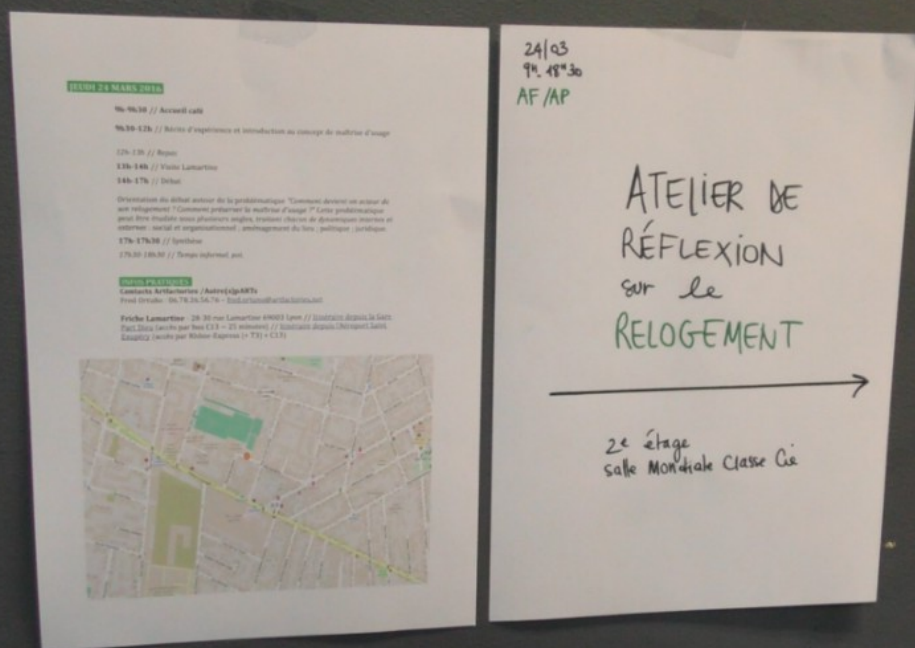 JEUDI 24 MARS 2016
9h-9h30 // Accueil café
9h30-12h // Récits d'expérience et introduction au concept de maîtrise d'usage
12h-13h // Repas
13h-14h // Visite Lamartine
14h-17h // Débat
Orientation du débat autour de la problématique "Comment devenir un acteur de
son relogement ? Comment préserver la maîtrise d'usage ?" Cette problématique
peut être étudiée sous plusieurs angles, traitant chacun de dynamiques internes et
externes : social et organisationnel ; aménagement du lieu ; politique ; juridique.
17h-17h30 // Synthèse
17h30-18h30 // Temps informel, pot.
INFOS PRATIQUES
Contacts Artfactories /Autre(s)pARTs
Fred Ortuño - 06.78.26.56.76 -
Friche Lamartine - 28-30 rue Lamartine 69003 Lyon // Itinéraire depuis la Gare
Part Dieu (accès par bus C13 – 25 minutes) // Itinéraire depuis l'Aéroport Saint
Exupéry (accès par Rhône-Express (+ T3) + C13)
24/03
9h. 18h30
AF/AP
ATELIER DE
RÉFLEXION
sur le
RELOGEMENT
2e étage
salle Mondiale Classe Cie